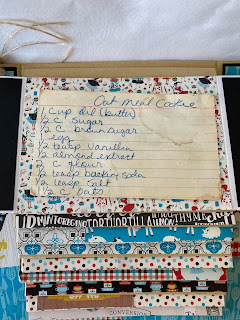 Oat Meal Cookie
1 Cup oil (butter)
1/2 C sugar
1/2 C brown sugar
1 egg
1/2 teasp Vanilla
1/2 almond extract
C flour
1/2 teasp backing soda
1/2 teasp Salt
C Oats
CONVERSION